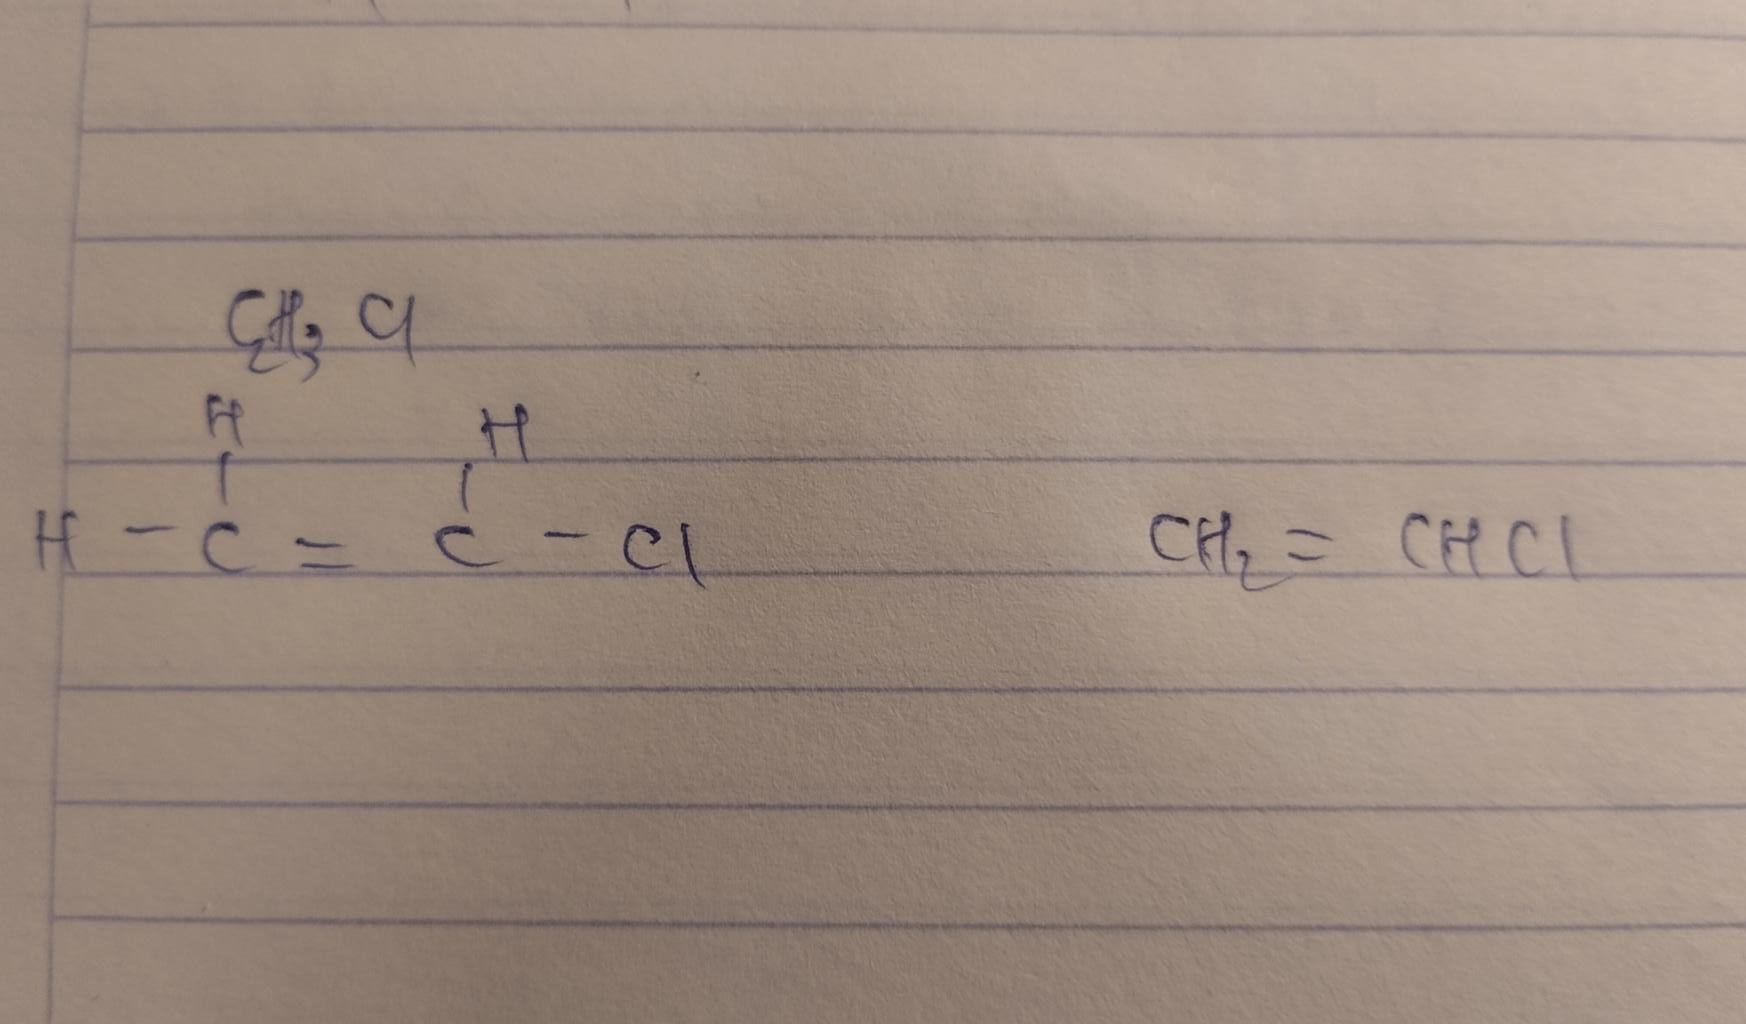 C₂H₃Cl
H H
| |
H – C = C – Cl CH₂ = CHCl